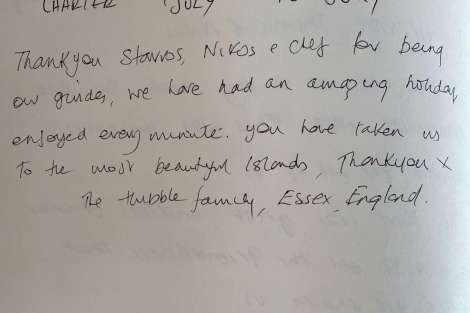 CHARTER JULY
Thankyou Stavros, Nikos e Clef for being
our guides, we have had an amazing holiday,
enjoyed every minute. you have taken us
To the most beautiful Islands, Thankyou x
The Hubble family, Essex, England.